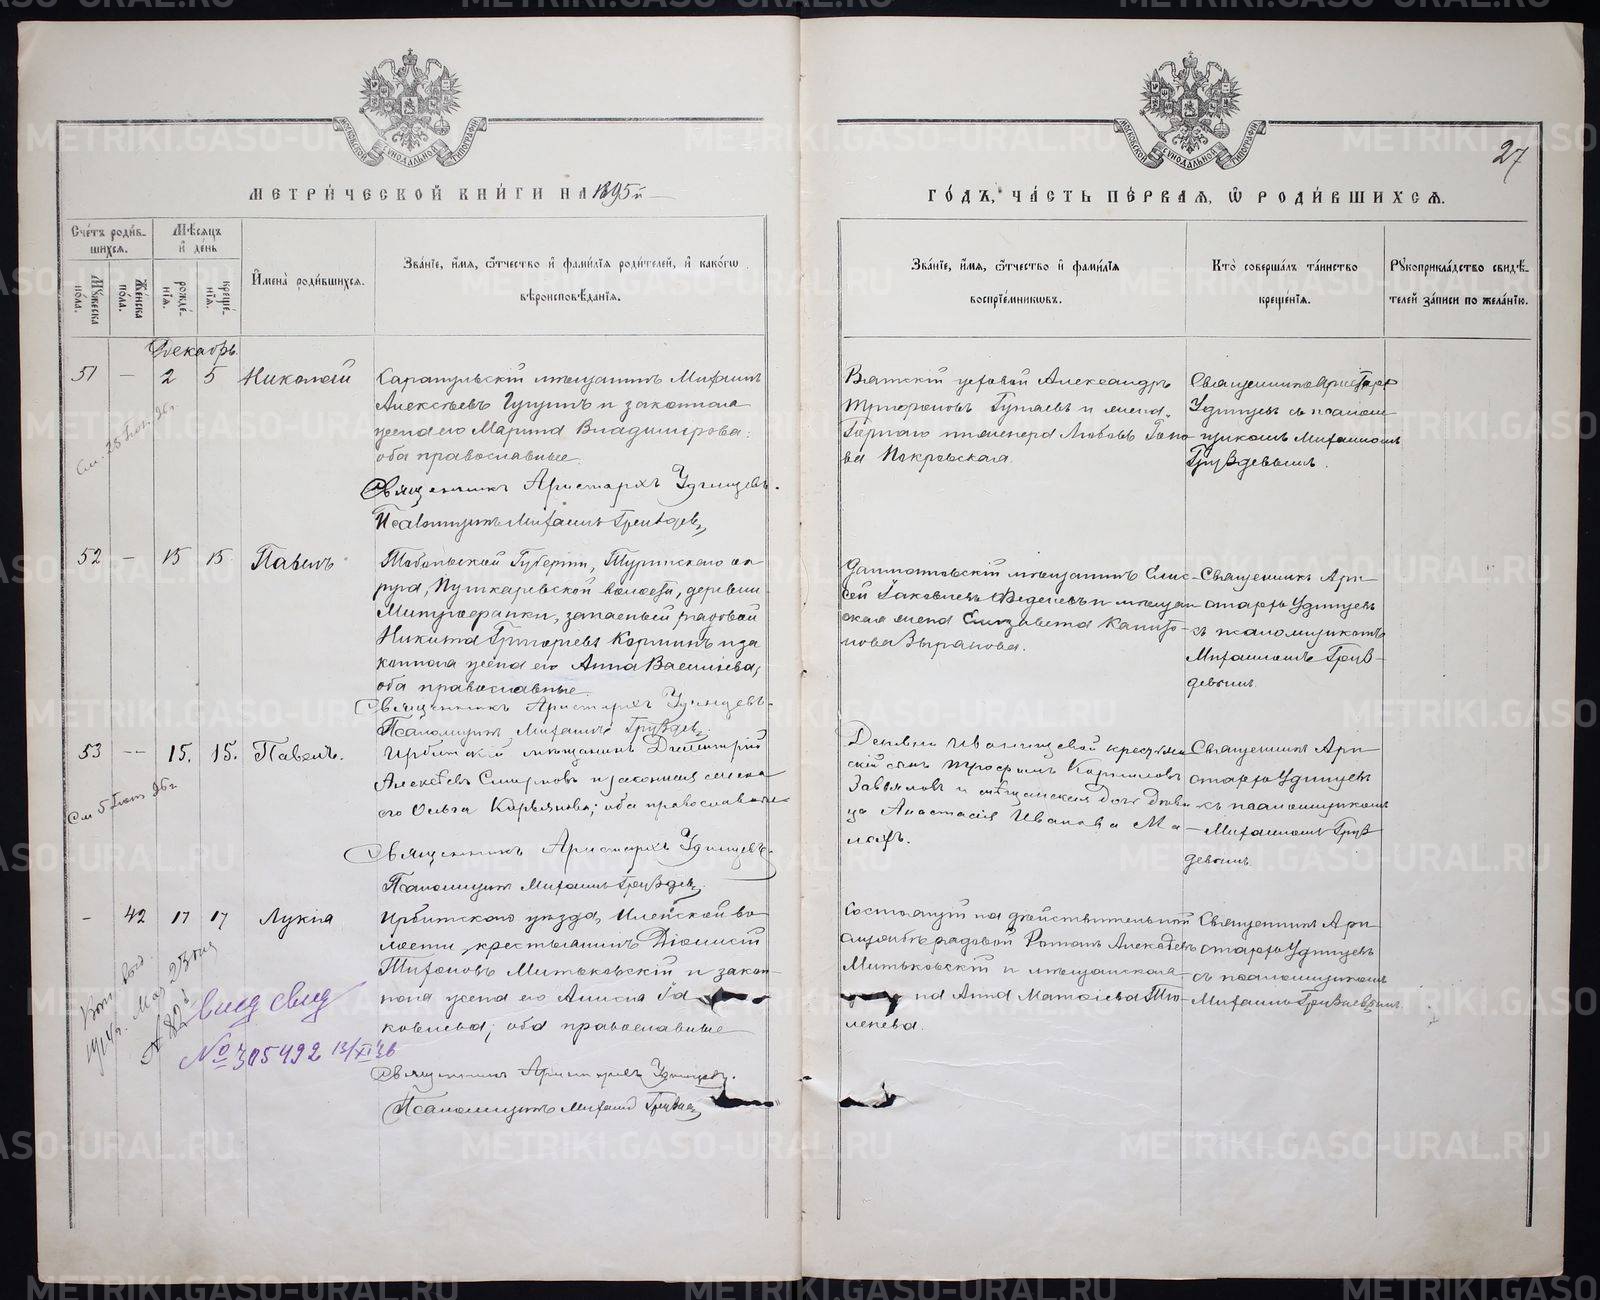 МЕТРИЧЕСКОЙ КНИГИ НА 1895 й
Счетъ родившихся.
Мужеска пола.
Женска пола.
Мѣсяцъ и день
рожденія.
крещенія.
Имена родившихся.
Званіе, имя, отчество и фамилія родителей, и какого вѣроисповѣданія.
Декабрь.
51 — 2 5 Николай
Сарапульскій мѣщанинъ Михаилъ
Алексѣевъ и законная
жена его Марина Владимірова;
оба православные.
Священникъ Аристархъ Удинцевъ.
Псаломщикъ Михаилъ Груздевъ
52 — 15 15 Павелъ
Тобольской Губерніи, Туринскаго ок-
руга, Пушкаревской волости, деревни
запасный рядовой
Никита Григорьевъ и за-
конная жена его Анна Васильева,
оба православные.
Священникъ Аристархъ Удинцевъ.
Псаломщикъ Михаилъ Груздевъ.
53 — 15. 15. Павелъ.
Ирбитскій мѣщанинъ Димитрій
Алексѣевъ Смирновъ и законная жена
его Ольга оба православные
Священникъ Аристархъ Удинцевъ.
Псаломщикъ Михаилъ Груздевъ.
- 42 17 17 Лукія
Ирбитскаго уѣзда, Илейской во-
лости, крестьянинъ Діонисій
Тихоновъ Митьковскій и закон-
ная жена его Анисія Іа-
ковлева; оба православные
Священникъ Аристархъ Удинцевъ.
Псаломщикъ Михаилъ Груздевъ
№ 305492 13/XI 36
27
ГОДЪ, ЧАСТЬ ПЕРВАЯ, Ѡ РОДИВШИХСЯ.
Званіе, имя, отчество и фамилія воспріемниковъ.
Кто совершалъ таинство крещенія.
Рукоприкладство свидѣтелей записи по желанію.
Вятскій цеховой Александръ
Трифоновъ и жена
Горнаго инженера Любовь
Покровская.
Священникъ Аристархъ
Удинцевъ съ псалом-
щикомъ Михаиломъ
Груздевымъ.
Далматовскій мѣщанинъ Елис-
сей Іаковлевъ и мѣщан-
ская жена Елизавета Капито-
нова Зырянова.
Священникъ Ари-
стархъ Удинцевъ
съ псаломщикомъ
Михаиломъ Груз-
девымъ.
Деревни крестьян-
скій сынъ Трофимъ Корниловъ
Завьяловъ и мѣщанская дочь дѣви-
ца Анастасія Иванова
Священникъ Ари-
стархъ Удинцевъ
съ псаломщикомъ
Михаиломъ Груз-
девымъ.
Состоящій на дѣйствительной
рядовой Романъ Алексѣевъ
Митьковскій и мѣщанская
Анна Матвіева
Священникъ Ари-
стархъ Удинцевъ
съ псаломщикомъ
Михаиломъ Груздевымъ.
METRIKI.GASO-URAL.RU